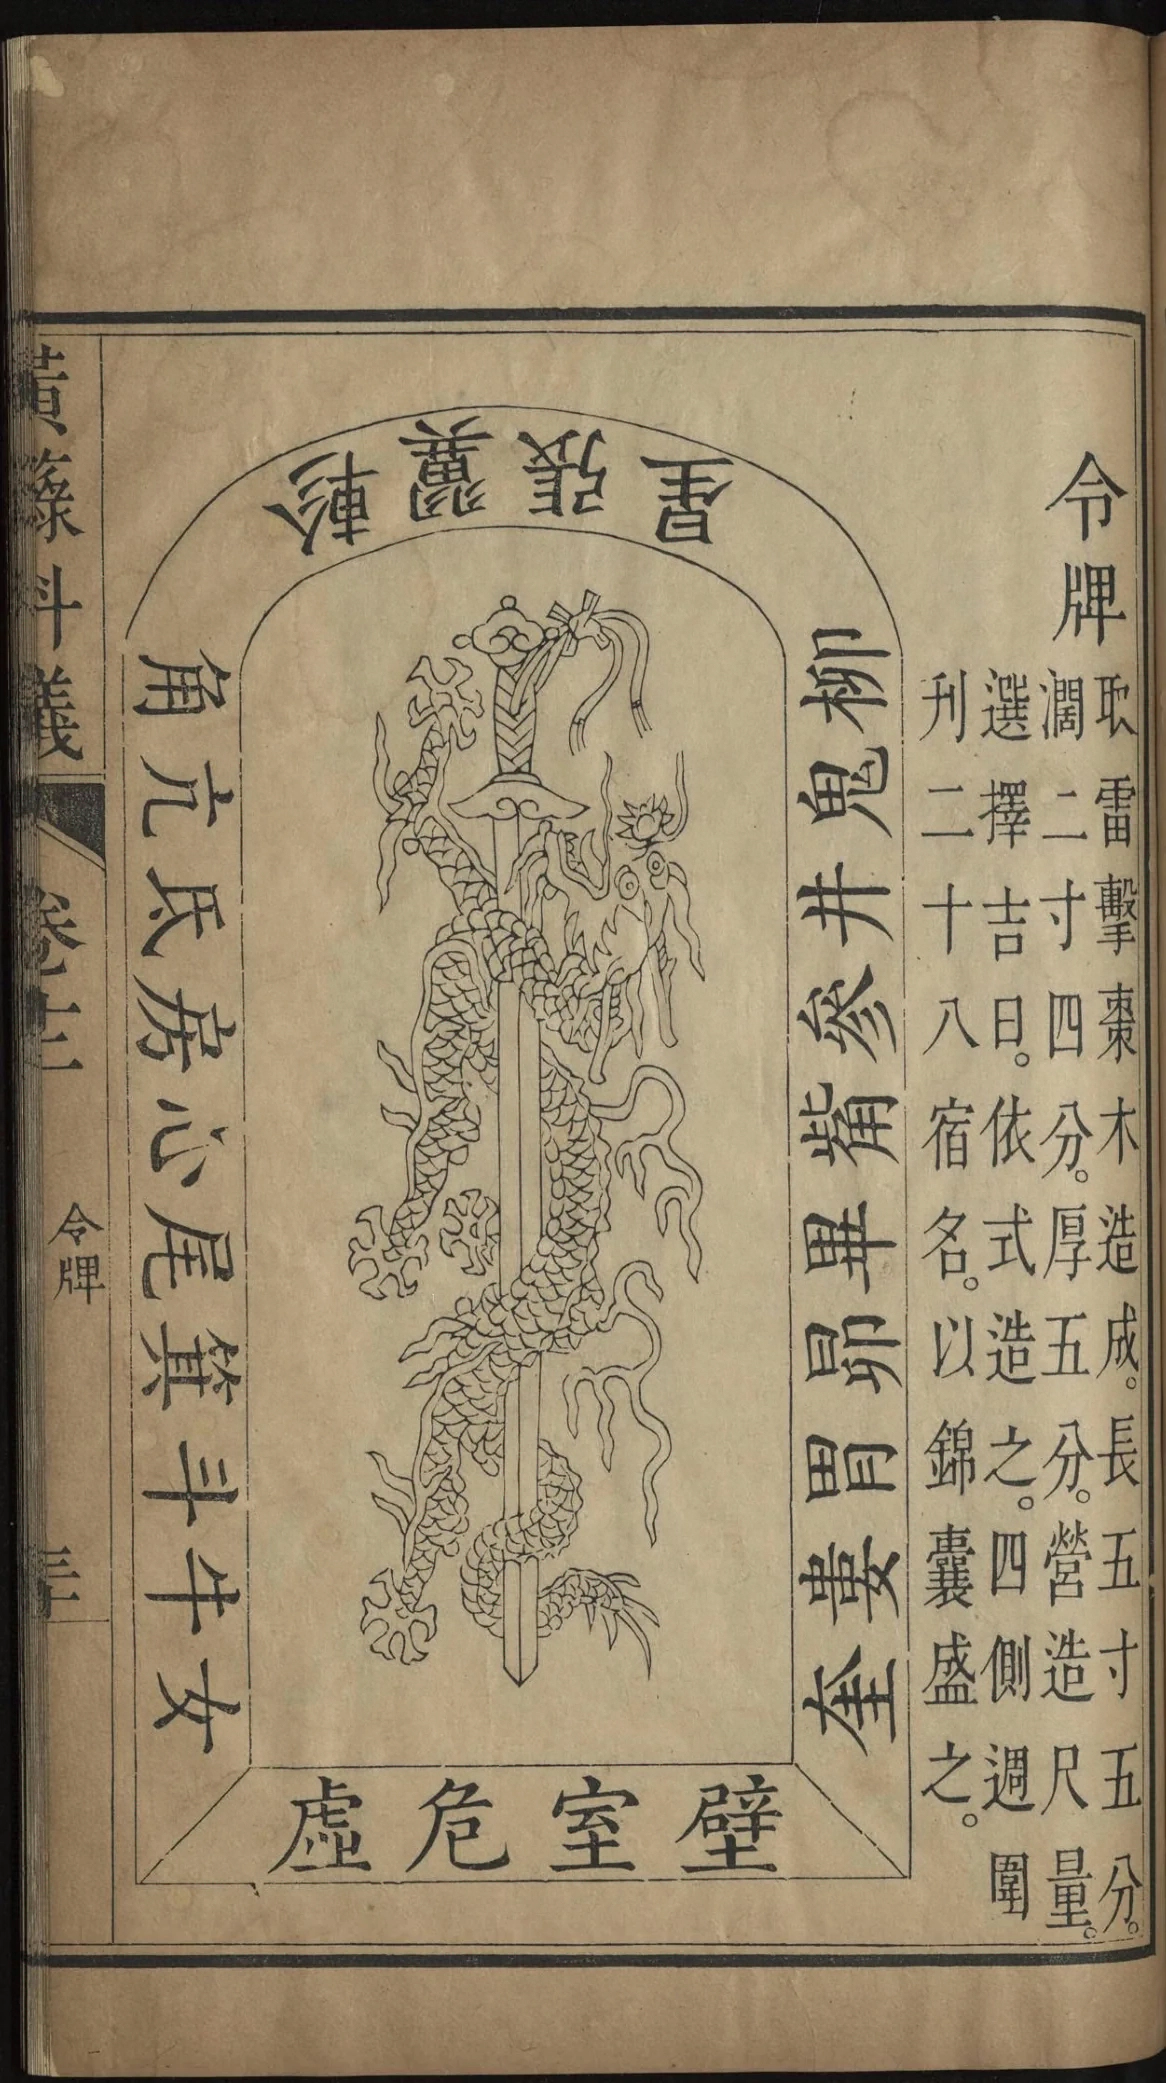 令牌
取雷擊棗木造成。長五寸五分。
濶二寸四分。厚五分。營造尺量。
選擇吉日。依式造之。四側週圍
刊二十八宿名。以錦囊盛之。
角亢氐房心尾箕斗牛女
虛危室壁
奎婁胃昴畢觜參井鬼柳
星張翼軫
黃籙科儀
卷十二
令牌